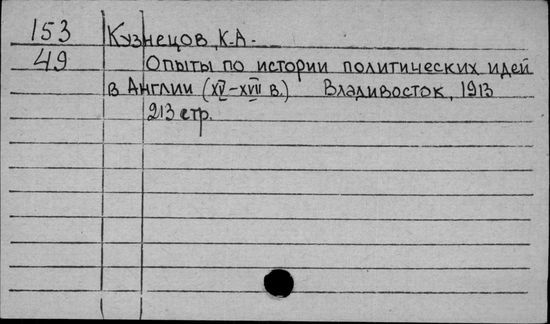 153 Кузнецов, К.А.
49 Опыты по истории политических идей
в Англии (XV-XVII в.) Владивосток, 1913
213 стр.